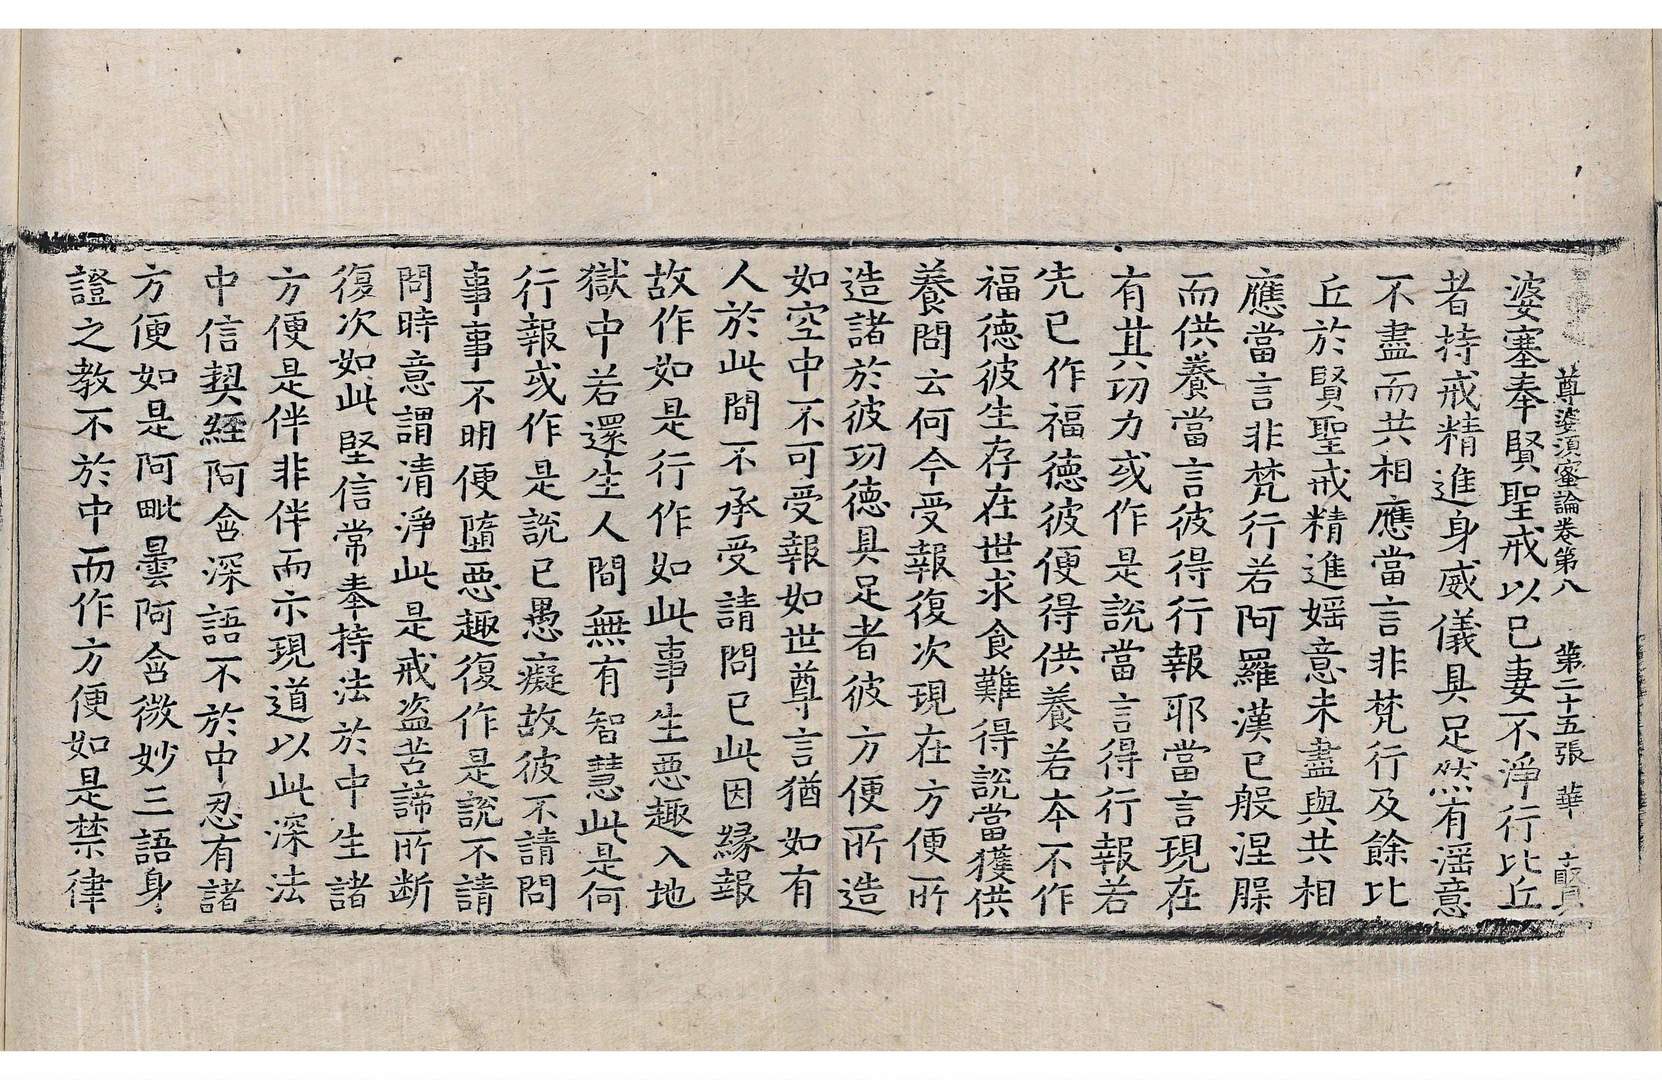 尊婆須蜜論卷第八 第二十五張 華
婆塞奉賢聖戒以己妻不淨行比丘
者持戒精進身威儀具足然有婬意
不盡而共相應當言非梵行及餘比
丘於賢聖戒精進婬意未盡與共相
應當言非梵行若阿羅漢已般涅槃
而供養當言彼得行報耶當言現在
有其功力或作是說當言得行報若
先已作福德彼便得供養若本不作
福德彼生存在世求食難得說當獲供
養問云何今受報復次現在方便所
造諸於彼功德具足者彼方便所造
如空中不可受報如世尊言猶如有
人於此間不承受請問已此因緣報
故作如是行作如此事生惡趣入地
獄中若還生人間無有智慧此是何
行報或作是說已愚癡故彼不請問
事事不明便墮惡趣復作是說不請
問時意謂清淨此是戒盜苦諦所斷
復次如此堅信常奉持法於中生諸
方便是伴非伴而示現道以此深法
中信契經阿含深語不於中忍有諸
方便如是阿毗曇阿含微妙三語身
證之教不於中而作方便如是禁律